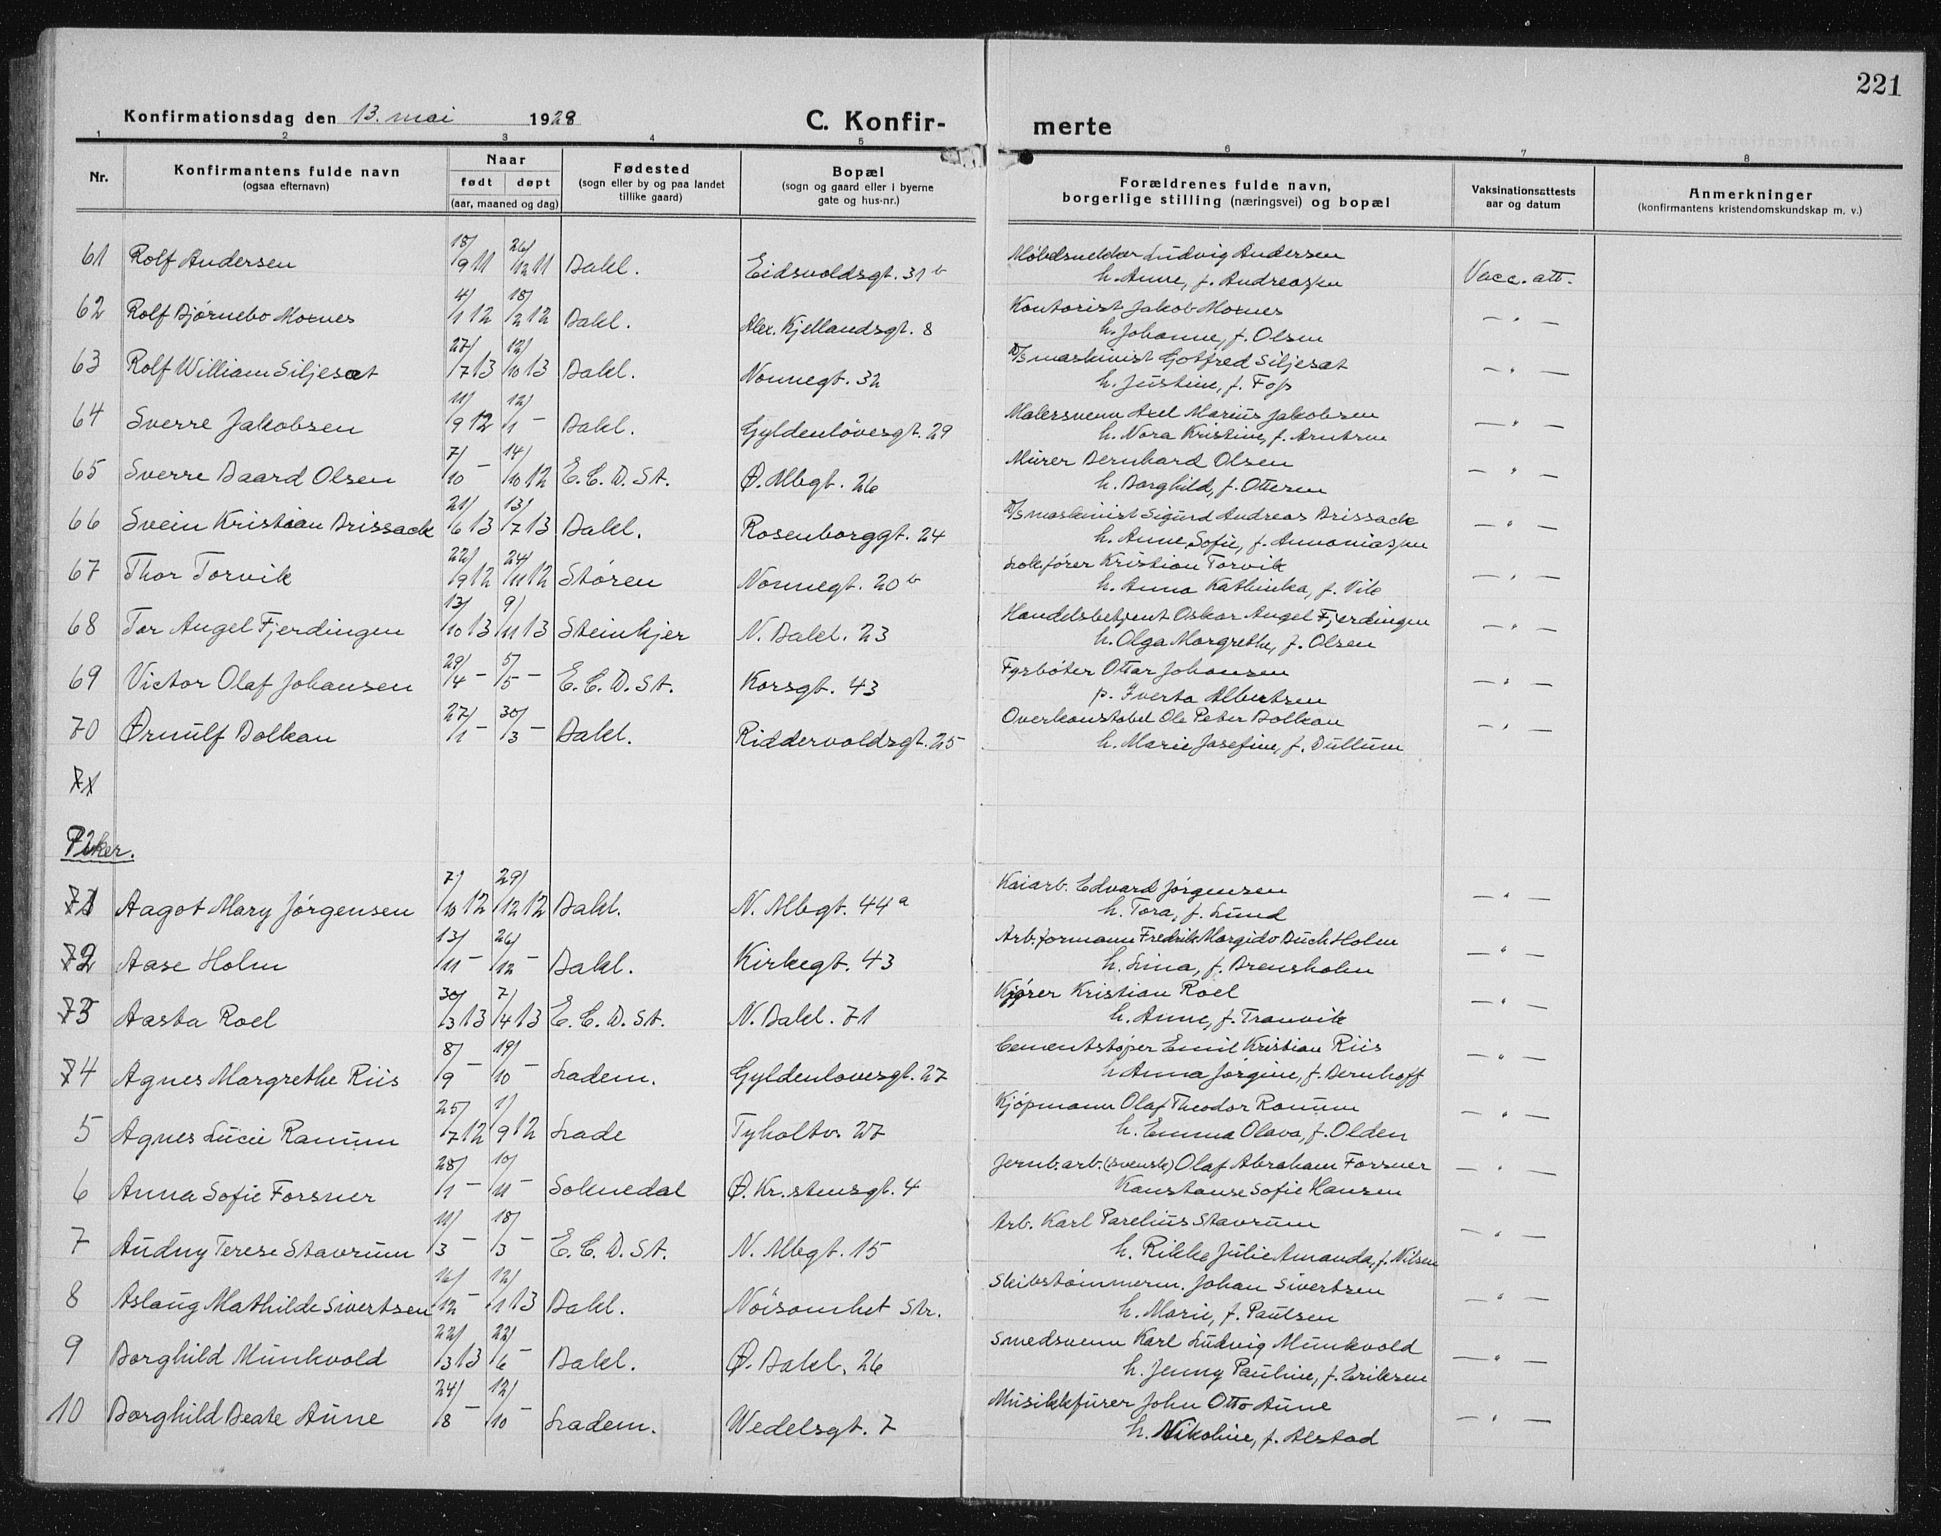 221
Konfirmationsdag den 13. mai 1928
C. Konfirmerte
1 2 3 4 5 6 7 8
Nr.
Konfirmantens fulde navn
(ogsaa efternavn)
Naar
født døpt
(aar, maaned og dag)
Fødested
(sogn eller by og paa landet
tillike gaard)
Bopæl
(sogn og gaard eller i byerne
gate og hus-nr.)
Forældrenes fulde navn,
borgerlige stilling (næringsvei) og bopæl
Vaksinationsattests
aar og datum
Anmerkninger
(konfirmantens kristendomskundskap m. v.)
61 Rolf Andersen 18/9 11 26/12 11 Bakl. Eidsvoldsgt. 31 b Møbelsnekker Ludvig Andersen Vacc. att.
h. Anne, f. Andreassen
62 Rolf Bjørnebo Moxnes 4/1 12 18/2 12 Bakl. Alex. Kjellandsgt. 8 Kontorist Jakob Moxnes — " —
h. Johanne, f. Olsen
63 Rolf William Siljesæt 27/7 13 12/10 13 Bakl. Nonnegt. 32 D/S maskinist Gotfred Siljesæt — " —
h. Justine, f. Foss
64 Sverre Jakobsen 11/9 12 12/1 — Bakl. Gyldenløvesgt. 29 Malersvenn Axel Marius Jakobsen — " —
h. Nora Kristine, f. Arntsen
65 Sverre Baard Olsen 7/10 — 14/10 12 E. C. D. St. Ø. Mbgt. 26 Murer Bernhard Olsen — " —
h. Borghild, f. Ottesen
66 Svein Kristian Brissach 21/6 13 13/7 13 Bakl. Rosenborggt. 24 D/S maskinist Sigurd Andreas Brissach — " —
h. Anne Sofie, f. Annaniassen
67 Thor Torvik 22/9 12 24/11 12 Støren Nonnegt. 20 b Lokfører Kristian Torvik — " —
h. Anna Kathinka, f. Vik
68 Tor Angel Fjerdingen 13/10 13 9/11 13 Steinkjer N. Bakl. 23 Handelsbetjent Oskar Angel Fjerdingen — " —
h. Olga Margrethe, f. Olsen
69 Victor Olaf Johansen 29/4 — 5/5 — E. C. D. St. Korsgt. 43 Fyrbøter Ottar Johansen — " —
p. Iverta Albertsen
70 Ørnulf Bolkan 27/1 — 30/3 — Bakl. Riddervoldsgt. 25 Overkonstabel Ole Peter Bolkan — " —
h. Marie Josefine, f. Dullum
71
Piker.
71 Aagot Mary Jørgensen 7/10 12 29/12 12 Bakl. N. Mbgt. 44 a Kaiarb. Edvard Jørgensen — " —
h. Tora, f. Lund
72 Aase Holm 13/11 — 26/12 — Bakl. Kirkegt. 43 Arb.formann Fredrik Margido Buch Holm — " —
h. Lina, f. Brensholm
73 Aasta Roel 30/3 13 7/4 13 E. C. D. St. N. Bakl. 71 Kjører Kristian Roel — " —
h. Anne, f. Tranvik
74 Agnes Margrethe Riis 8/9 — 19/10 — Ladem. Gyldenløvesgt. 27 Cementstøper Emil Kristian Riis — " —
h Anna Jørgine, f. Bernhoff
5 Agnes Lucie Ranum 25/7 12 1/9 12 Lade Tyholtv. 27 Kjøpmann Olaf Theodor Ranum — " —
h. Emma Olava, f. Olden
6 Anna Sofie Forsner 28/1 — 10/11 — Soknedal Ø. Kristensgt. 4 Jernb.arb. (svensk) Olaf Abraham Forsner — " —
Kanstanse Sofie Hansen
7 Audny Terese Stavrum 11/3 — 18/3 — E. C. D. St. N. Mbgt. 15 Arb. Karl Parelius Stavrum — " —
h. Rikke Julie Amanda, f. Nilsen
8 Aslaug Mathilde Sivertsen 16/12 — 12/1 13 Bakl. Nøisomhet Str. Skibstømmerm. Johan Sivertsen — " —
h. Marie, f. Paulsen
9 Borghild Munkvold 22/3 13 22/6 — Bakl. Ø. Bakl. 26 Smedsvenn Karl Ludvig Munkvold — " —
h. Jenny Pauline, f. Eriksen
10 Borghild Beate Aune 24/8 — 12/10 — Ladem. Wedelsgt. 7 Musikkfurer John Otto Aune — " —
h. Nikoline, f. Alstad